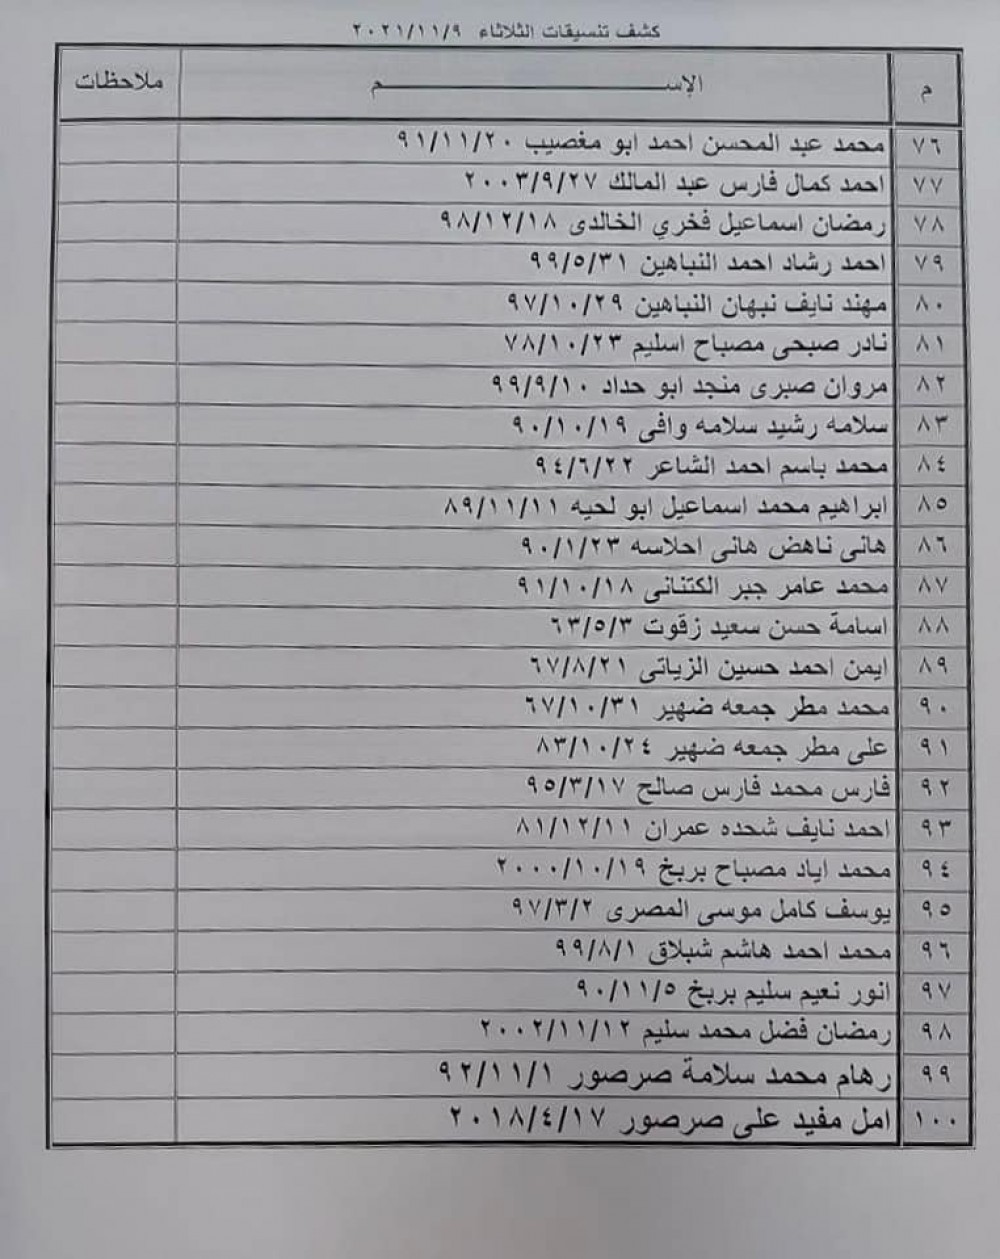 كشف تنسيقات الثلاثاء ٢٠٢١/١١/٩
م الإســـــــــــم ملاحظات
٧٦ محمد عبد المحسن احمد ابو مغصيب ٩١/١١/٢٠
٧٧ احمد كمال فارس عبد المالك ٢٠٠٣/٩/٢٧
٧٨ رمضان اسماعيل فخري الخالدى ٩٨/١٢/١٨
٧٩ احمد رشاد احمد النباهين ٩٩/٥/٣١
٨٠ مهند نايف نبهان النباهين ٩٧/١٠/٢٩
٨١ نادر صبحى مصباح اسليم ٧٨/١٠/٢٣
٨٢ مروان صبرى منجد ابو حداد ٩٩/٩/١٠
٨٣ سلامه رشيد سلامه وافى ٩٠/١٠/١٩
٨٤ محمد باسم احمد الشاعر ٩٤/٦/٢٢
٨٥ ابراهيم محمد اسماعيل ابو لحيه ٨٩/١١/١١
٨٦ هانى ناهض هانى احلاسه ٩٠/١/٢٣
٨٧ محمد عامر جبر الكتنانى ٩١/١٠/١٨
٨٨ اسامة حسن سعيد زقوت ٦٣/٥/٣
٨٩ ايمن احمد حسين الزياتى ٦٧/٨/٢١
٩٠ محمد مطر جمعه ضهير ٦٧/١٠/٣١
٩١ على مطر جمعه ضهير ٨٣/١٠/٢٤
٩٢ فارس محمد فارس صالح ٩٥/٣/١٧
٩٣ احمد نايف شحده عمران ٨١/١٢/١١
٩٤ محمد اياد مصباح بربخ ٢٠٠٠/١٠/١٩
٩٥ يوسف كامل موسى المصرى ٩٧/٣/٢
٩٦ محمد احمد هاشم شبلاق ٩٩/٨/١
٩٧ انور نعيم سليم بربخ ٩٠/١١/٥
٩٨ رمضان فضل محمد سليم ٢٠٠٢/١١/١٢
٩٩ رهام محمد سلامة صرصور ٩٢/١١/١
١٠٠ امل مفيد على صرصور ٢٠١٨/٤/١٧